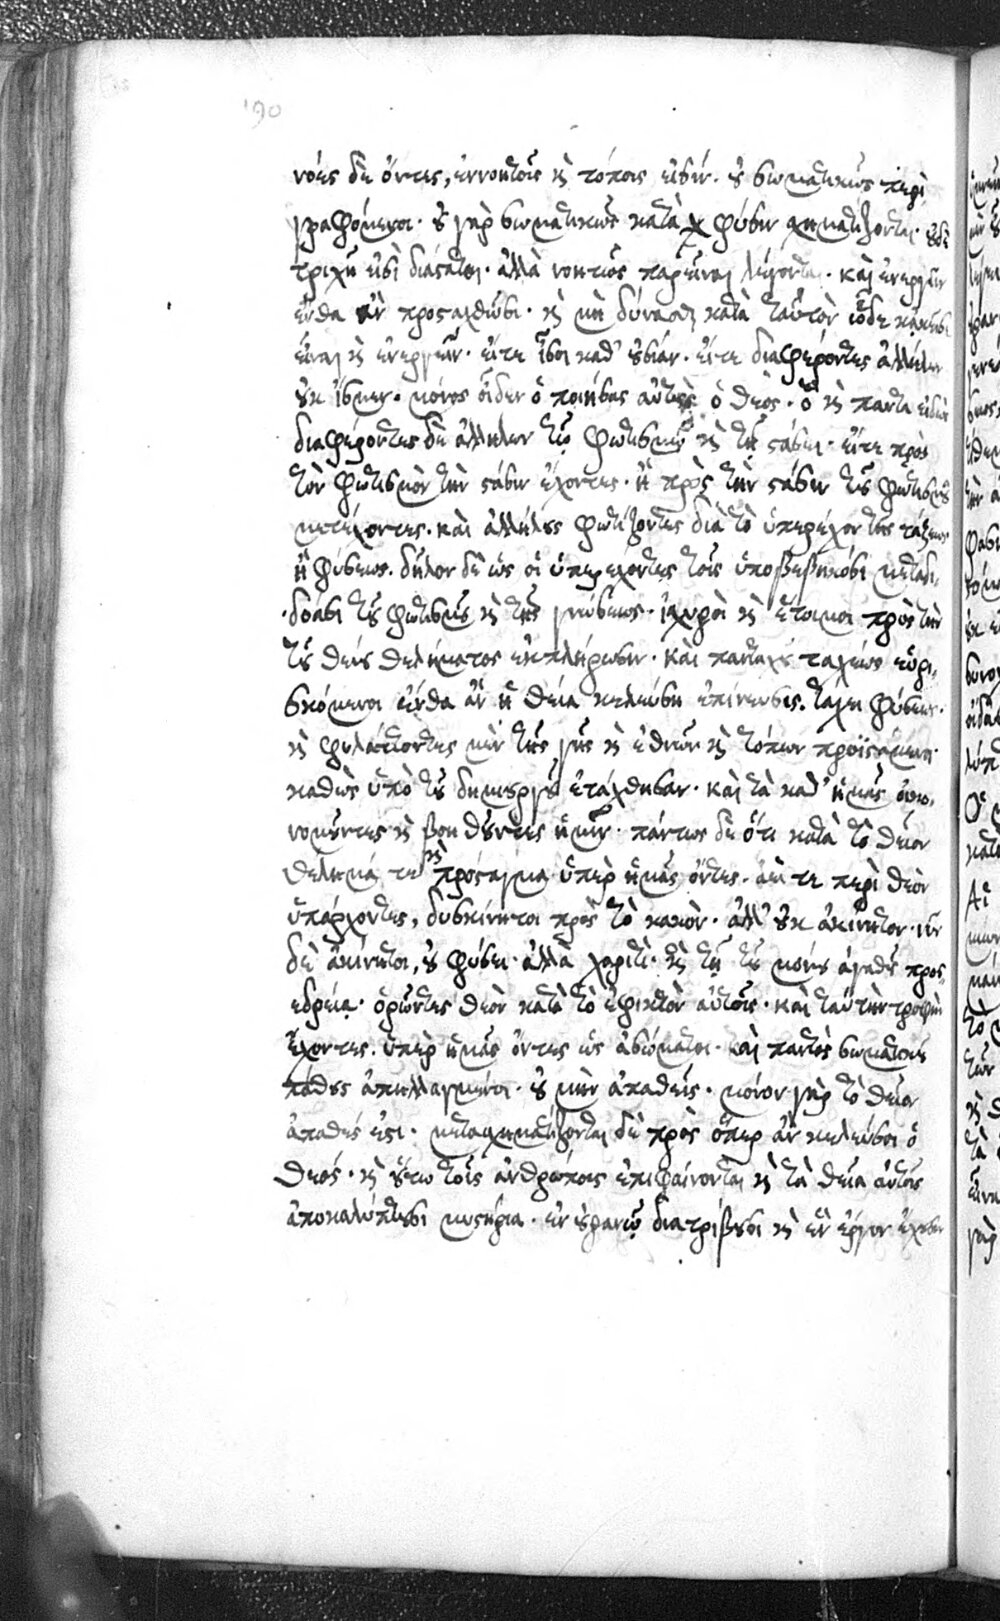 190
νόες δὲ ὄντες, ἐν νοητοῖς καὶ τόποις εἰσίν· οὐ σωματικῶς περι
γραφόμενοι· οὐ γὰρ σωματικῶς κατὰ φύσιν σχηματίζονται· οὐδὲ
τριχῆ εἰσι διάστατοι· ἀλλὰ νοητῶς παρεῖναι λέγονται· καὶ ἐνεργεῖν
ἔνθα ἂν προσταχθῶσι· καὶ μὴ δύνασθαι κατὰ ταὐτὸν ὧδε κἀκεῖσε
εἶναι καὶ ἐνεργεῖν· εἴτε ἴσοι κατ' οὐσίαν· εἴτε διαφέροντες ἀλλήλων
οὐκ ἴσμεν· μόνος οἶδεν ὁ ποιήσας αὐτοὺς ὁ θεός· ὁ καὶ πάντα εἰδώς
διαφέροντες δὲ ἀλλήλων τῷ φωτισμῷ καὶ τῇ στάσει· εἴτε πρὸς
τὸν φωτισμὸν τὴν στάσιν ἔχοντες· ἢ πρὸς τὴν στάσιν τοῦ φωτισμοῦ
μετέχοντες· καὶ ἀλλήλους φωτίζοντες διὰ τὸ ὑπερέχον τῆς τάξεως
ἢ φύσεως. δῆλον δὲ ὡς οἱ ὑπερέχοντες τοῖς ὑποβεβηκόσι μεταδι-
δόασι τοῦ φωτισμοῦ καὶ τῆς γνώσεως· ἰσχυροὶ καὶ ἕτοιμοι πρὸς τὴν
τοῦ θείου θελήματος ἐκπλήρωσιν· καὶ πανταχοῦ ταχέως εὑρι-
σκόμενοι ἔνθα ἂν ἡ θεία κελεύσῃ ἐπίνευσις. τάχει φύσεως·
καὶ φυλάττοντες μέρη τῆς γῆς καὶ ἐθνῶν καὶ τόπων προϊστάμενοι·
καθὼς ὑπὸ τοῦ δημιουργοῦ ἐτάχθησαν· καὶ τὰ καθ' ἡμᾶς οἰκο-
νομοῦντες καὶ βοηθοῦντες ἡμῖν· πάντως δὲ ὅτι κατὰ τὸ θεῖον
θέλημά τε καὶ πρόσταγμα ὑπὲρ ἡμᾶς ὄντες. ἀεί τε περὶ θεὸν
ὑπάρχοντες, δυσκίνητοι πρὸς τὸ κακὸν· ἀλλ' οὐκ ἀκίνητοι· νῦν
δὲ ἀκίνητοι, οὐ φύσει· ἀλλὰ χάριτι· καὶ τῇ τοῦ μόνου ἀγαθοῦ προσ-
εδρείᾳ· ὁρῶντες θεὸν κατὰ τὸ ἐφικτὸν αὐτοῖς· καὶ ταύτην τροφὴν
ἔχοντες. ὑπὲρ ἡμᾶς ὄντες ὡς ἀσώματοι· καὶ παντὸς σωματικοῦ
πάθους ἀπηλλαγμένοι· οὐ μὴν ἀπαθεῖς· μόνον γὰρ τὸ θεῖον
ἀπαθές ἐστι· μετασχηματίζονται δὲ πρὸς ὅπερ ἂν κελεύσοι ὁ
θεός· καὶ οὕτω τοῖς ἀνθρώποις ἐπιφαίνονται καὶ τὰ θεῖα αὐτοῖς
ἀποκαλύπτουσι μυστήρια· ἐν οὐρανῷ διατρίβουσι καὶ ἓν ἔργον ἔχουσιν